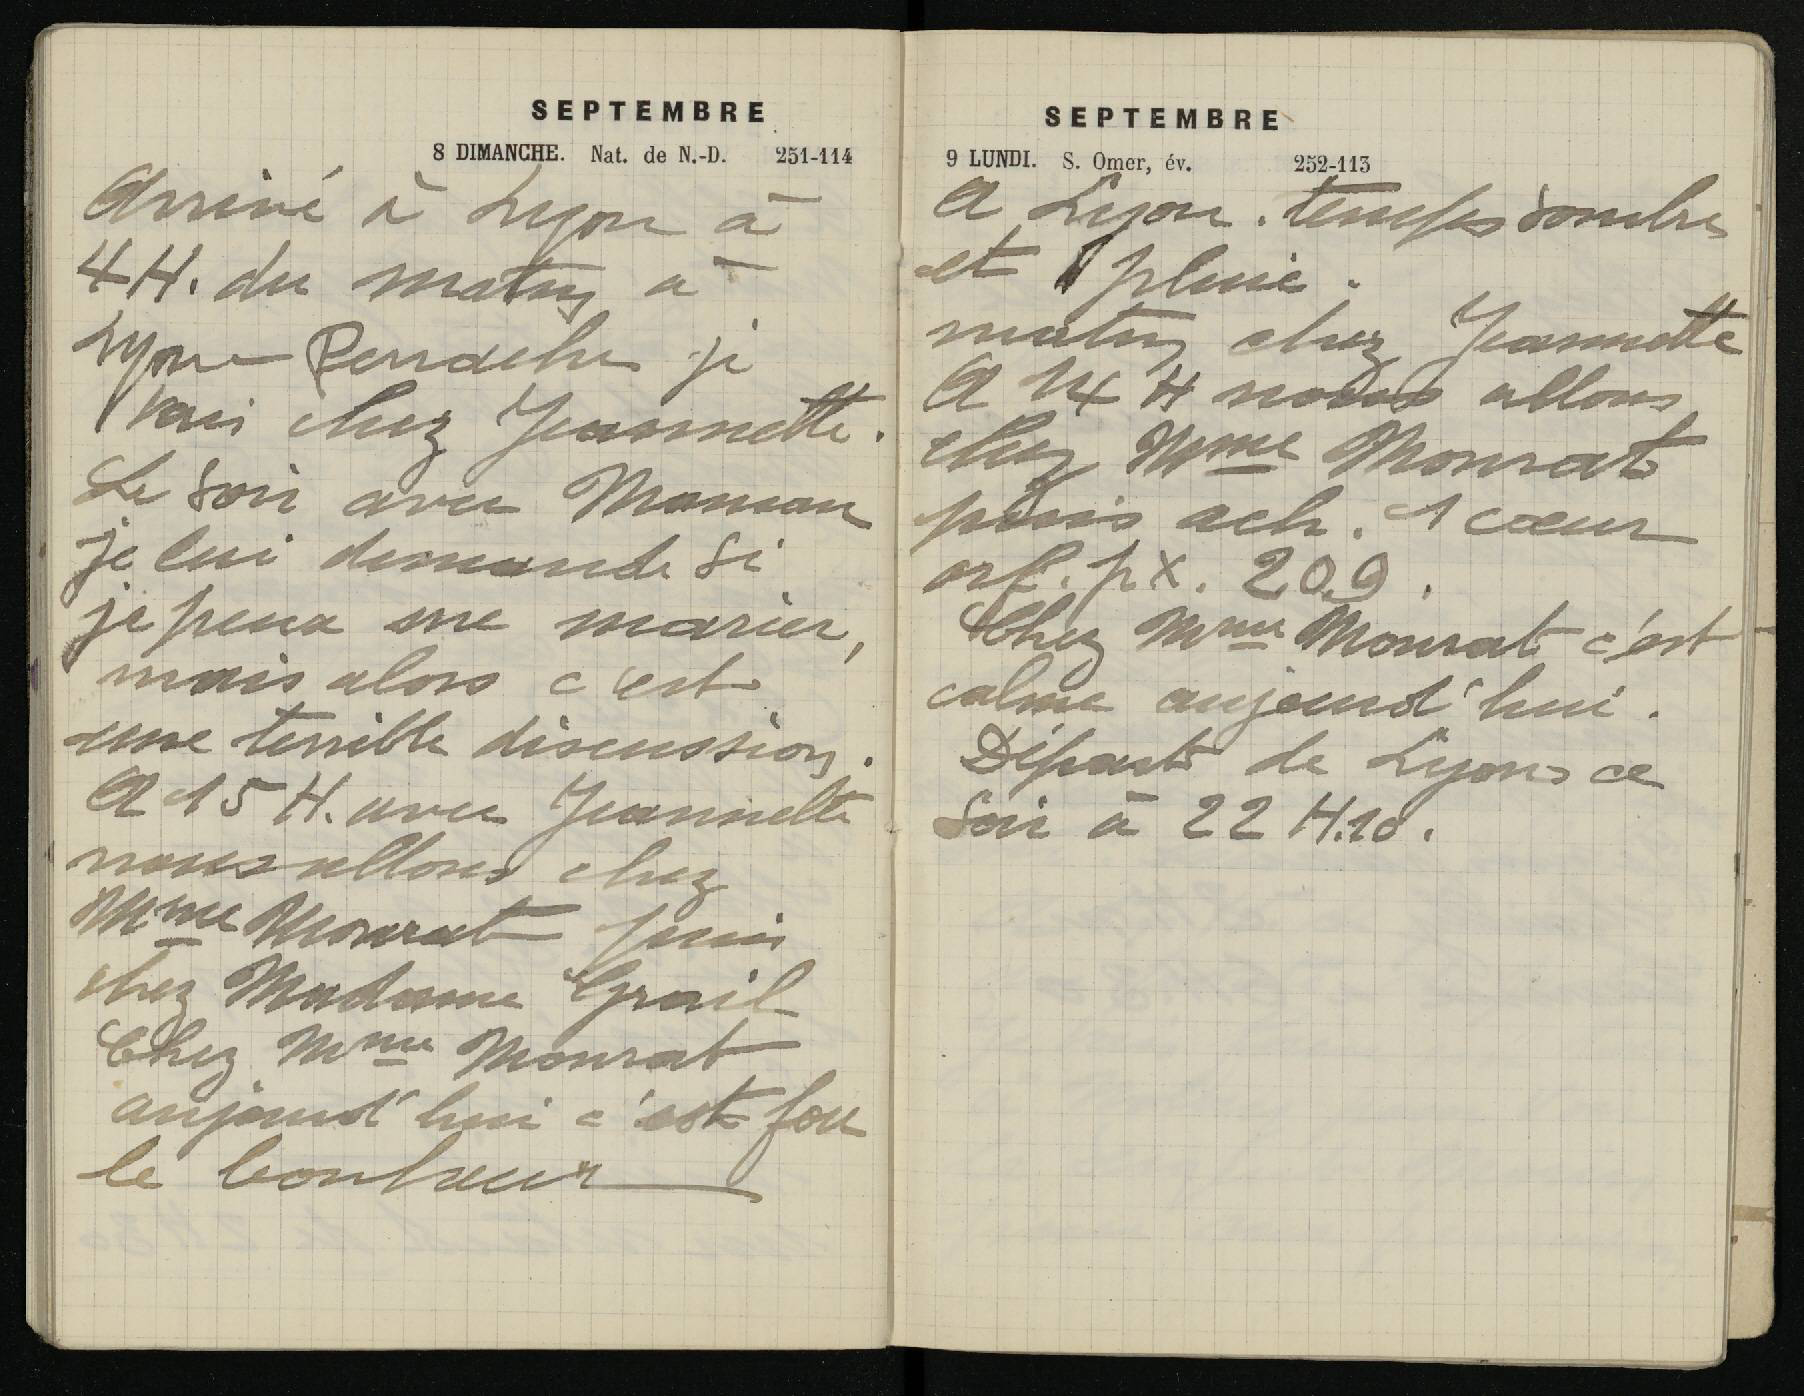 SEPTEMBRE
8 DIMANCHE. Nat. de N.-D. 251-114
Arrivé à Lyon à
4 H. du matin a
Lyon Perrache je
vais chez Jeannette.
Le soir avec Maman
je lui demande si
je peux me marier,
mais alors c'est
une terrible discussion.
A 15 H. avec Jeannette
nous allons chez
Mme Monrat puis
chez Madame Grail
Chez Mme Monrat
aujourd'hui c'est fou
le bonheur
SEPTEMBRE
9 LUNDI. S. Omer, év. 252-113
A Lyon. temps sombre
et pluie.
matin chez Jeannette
A 14 H nous allons
chez Mme Monrat
puis ach. 1 coeur
orf. px. 209.
Chez Mme Monrat c'est
calme aujourd'hui.
Départ de Lyon ce
soir à 22 H.10.